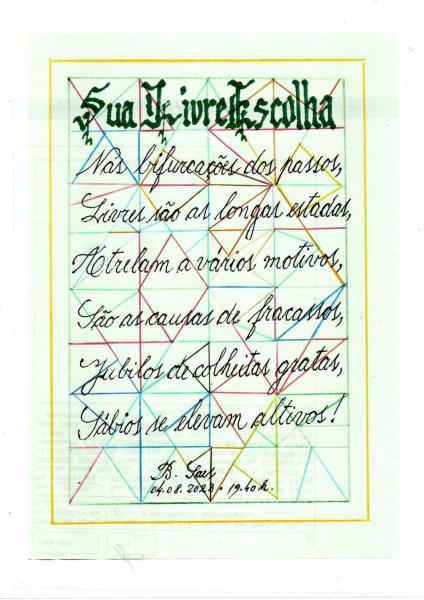 Sua Livre Escolha
Nas bifurcações dos passos,
Livres são as longas estadas,
Atrelam a vários motivos,
São as causas de fracassos,
Júbilos de colheitas gratas,
Sábios se elevam altivos!
B.
04.08.2023 • 19.40 h.